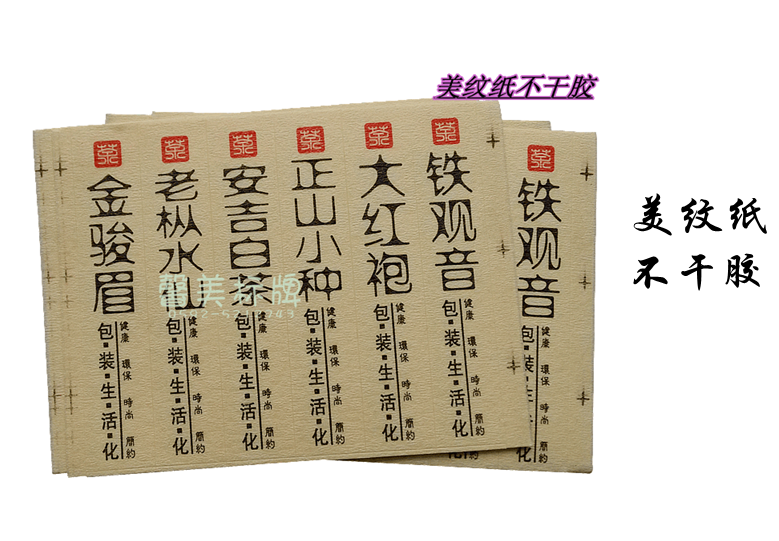 美纹纸不干胶
美纹纸
不干胶
茶
金骏眉
包·装·生·活·化
健康 環保 時尚 簡約
茶
老枞水仙
包·装·生·活·化
健康 環保 時尚 簡約
茶
安吉白茶
包·装·生·活·化
健康 環保 時尚 簡約
茶
正山小种
包·装·生·活·化
健康 環保 時尚 簡約
茶
大红袍
包·装·生·活·化
健康 環保 時尚 簡約
茶
铁观音
包·装·生·活·化
健康 環保 時尚 簡約
茶
铁观音
包·装·生·活·化
健康 環保 時尚 簡約